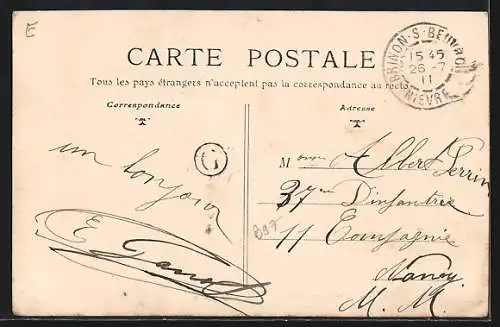 E
CARTE POSTALE
Tous les pays étrangers n'acceptent pas la correspondance au recto
BRINON-S-BEUVRON
15 45
26-7
11
NIEVRE
Correspondance
Adresse
un bonjour
E
M Albert Perrin
37 D'infanterie
11 Compagnie
Nancy
M. M.